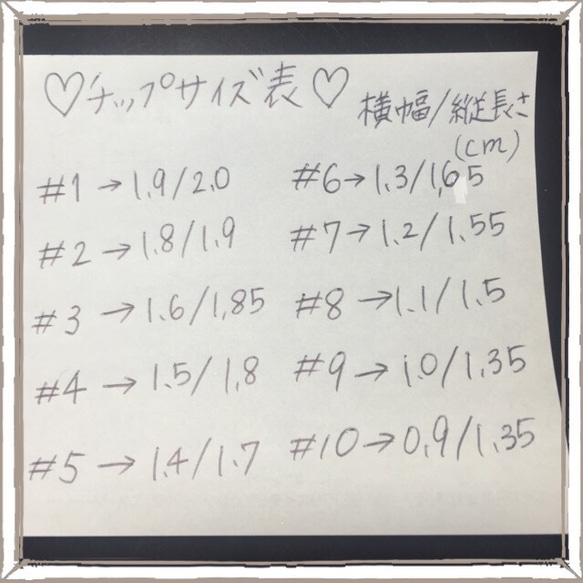 ♡チップサイズ表♡
横幅/縦長さ
(cm)
#1→1.9/2.0
#2→1.8/1.9
#3→1.6/1,85
#4→1.5/1,8
#5→1.4/1.7
#6→1.3/1,65
#7→1.2/1.55
#8→1.1/1.5
#9→1.0/1.35
#10→0.9/1.35